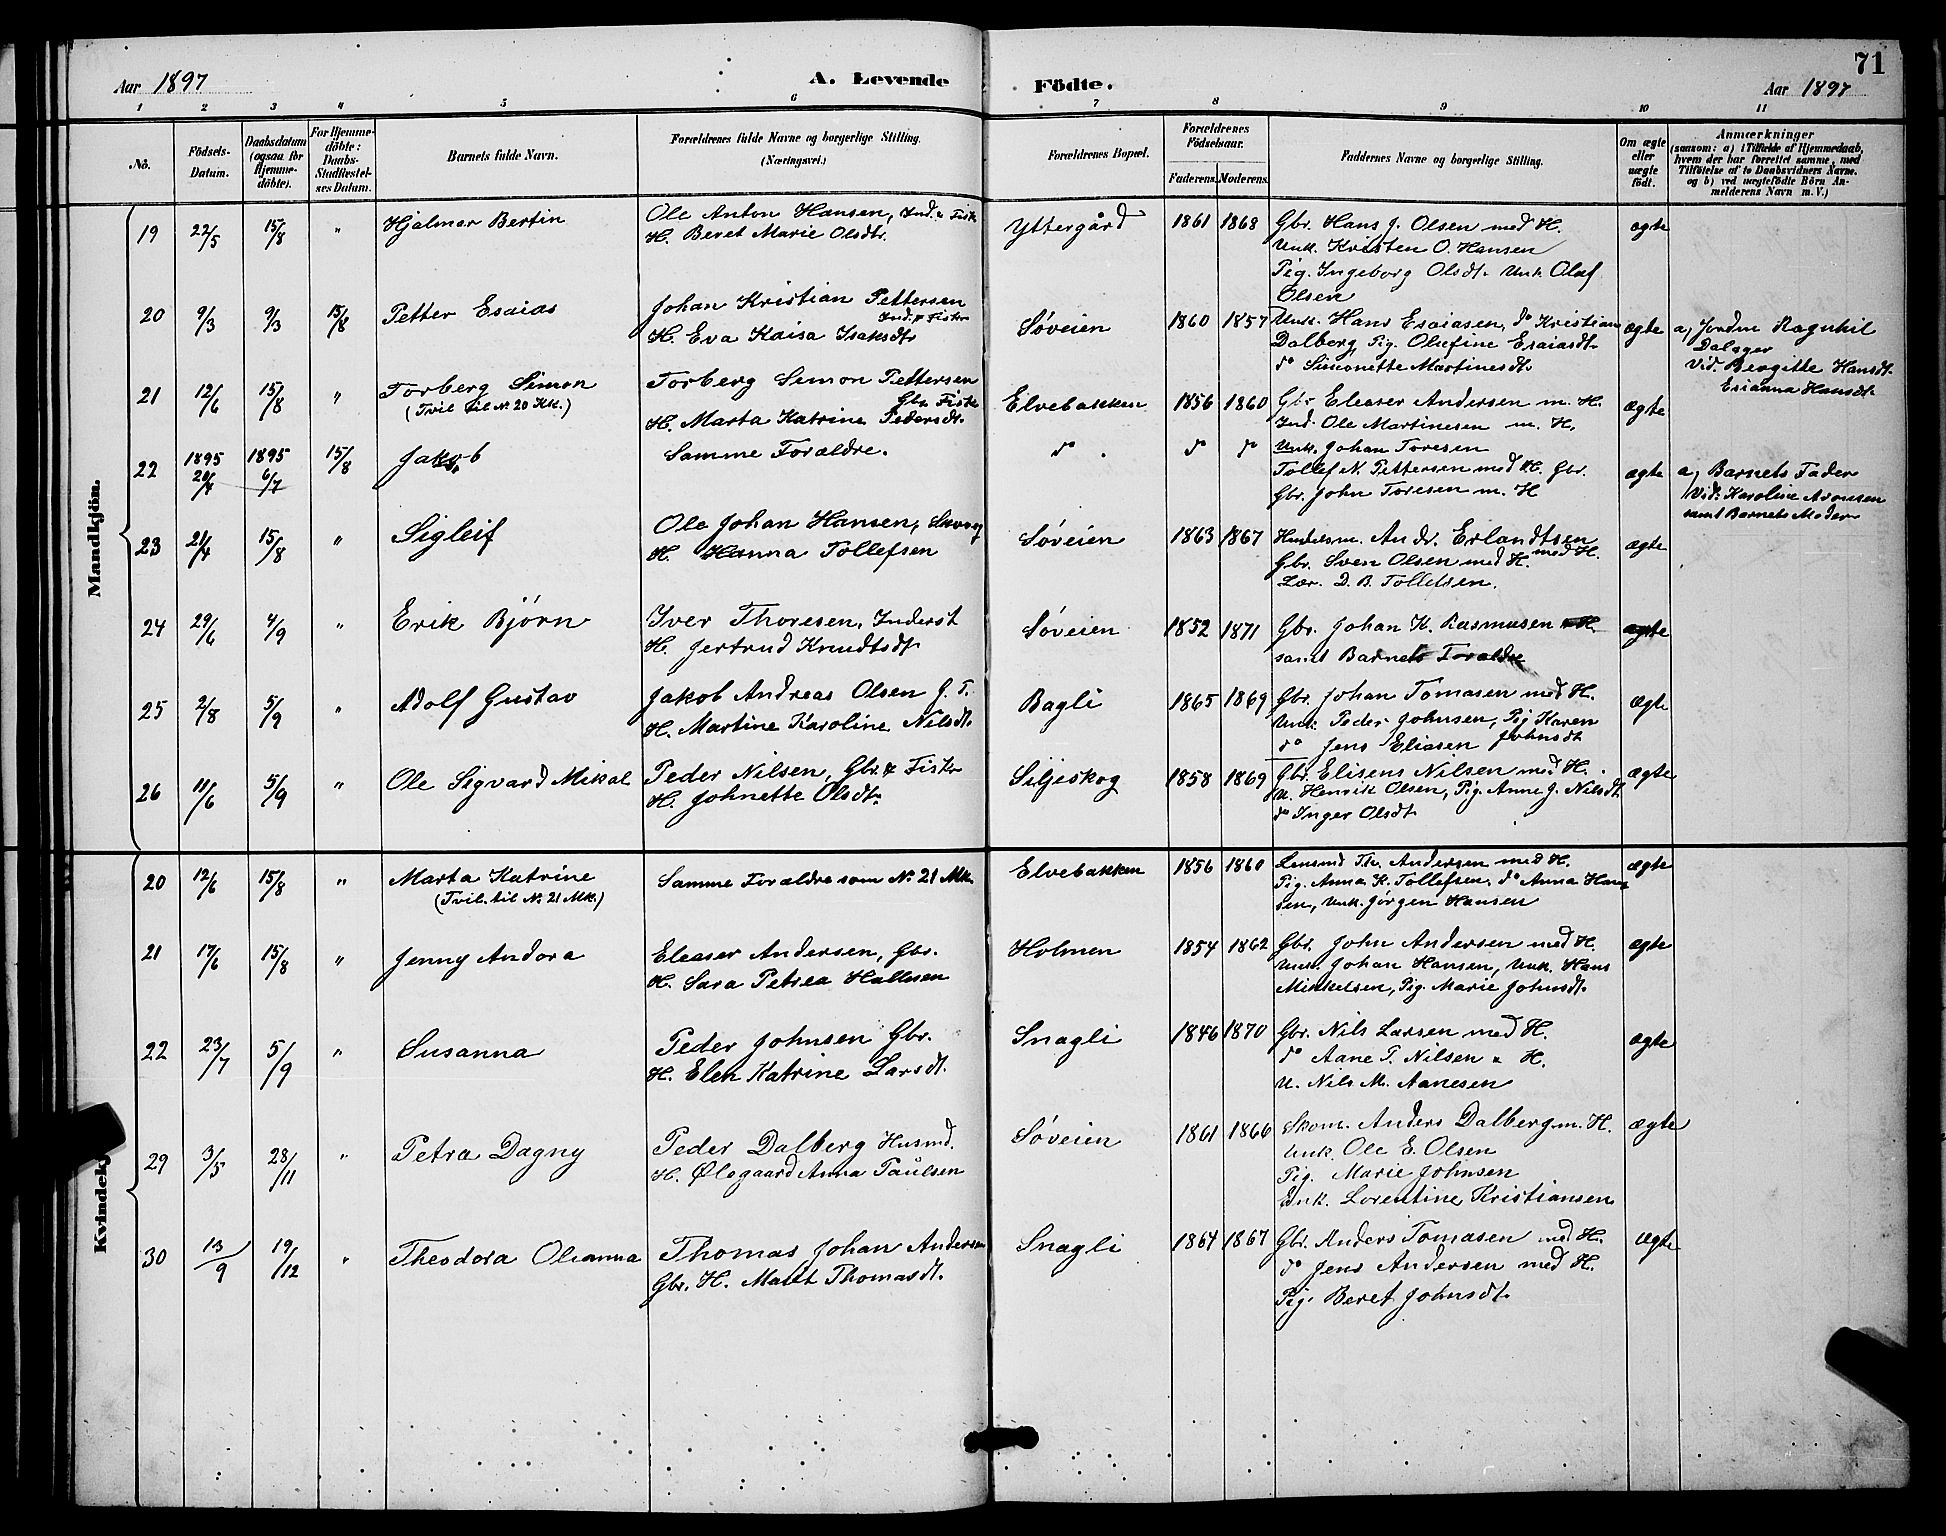 71
Aar 1897 A. Levende Födte. Aar 1897
1 2 3 4 5 6 7 8 9 10 11
No. Födsels-Datum. Daabsdatum (ogsaa for Hjemme-döbte). For Hjemme-döbte: Daabs-Stadfæstel-ses Datum. Barnets fulde Navn. Forældrenes fulde Navne og borgerlige Stilling. (Næringsvei.) Forældrenes Bopæl. Forældrenes Födselsaar. Faderens. Moderens. Faddernes Navne og borgerlige Stilling. Om ægte eller uægte födt. Anmærkninger (saasom: a) i Tilfælde af Hjemmedaab, hvem der har forrettet samme, med Tilföielse af to Daabsvidners Navne, og b) ved uægtefödte Börn An-melderens Navn m. V.)
Mandkjön.
19 22/5 15/8 " Hjalmar Bertin Ole Anton Hansen, Ind. & Fisk Yttergård 1861 1868 Gbr. Hans J. Olsen med H. ægte
H. Beret Marie Olsdtr. Unk. Kristen O. Hansen
Pig. Ingeborg Olsdt. Unk. Olaf
Olsen
20 9/3 9/3 15/8 Petter Esaias Johan Kristian Pettersen Søveien 1860 1857 Unk. Hans Esaiasen, do Kristian ægte a, Jordm Ragnhil
Ind. & Fisker Dalberg, Pig. Olefine Esaiasdt. Dalager
H. Eva Kaisa Isaksdtr do Simonette Martinesdt. Vid. Bergitte Hansdt.
Esianna Hansdt.
21 12/6 15/8 " Torberg Simon Torberg Simon Pettersen Elvebakken 1856 1860 Gbr Eleaser Andersen m. H. ægte
(Tvil. til No 20 Kk.) Gbr. Fisk Ind. Ole Martinesen m. H.
H. Marta Katrine Pedersdt. Unk. Johan Toresen
22 1895 20/4 1895 6/7 15/8 Jakob Samme Forældre. do do do Tollef N. Pettersen med H. Gbr. ægte a, Barnets Fader
Gbr. John Toresen m. H Vid. Karoline Aronsen
samt Barnets Moder
23 21/4 15/8 " Sigleif Ole Johan Hansen, Søveien 1863 1867 Andr. Erlandtsen ægte
H. Hanna Tollefsen med H.
Gbr. Sven Olsen med H.
Lær. D. B. Tollefsen.
24 29/6 4/9 " Erik Bjørn Iver Thoresen, Inderst Søveien 1852 1871 Gbr. Johan K. Rasmusen ægte
H. Jertrud Knudtsdt. samt Barnets Forældre
25 2/8 5/9 " Adolf Gustav Jakob Andreas Olsen J. F. Bagli 1865 1869 Gbr. Johan Tomasen med H. ægte
H. Martine Karoline Nilsdt. Unk. Peder Johnsen, Pig Karen
do Jens Eliasen Johnsdt
26 11/6 5/9 " Ole Sigvard Mikal Peder Nilsen, Gbr. & Fisker Siljeskog 1858 1869 Gbr. Elisens Nilsen med H. ægte
H. Johnette Olsdt. U. Henrik Olsen, Pig. Anne J. Nilsdt.
do Inger Olsdt
Kvindekj
20 12/6 15/8 " Marta Katrine Samme Forældre som No 21 Mk. Elvebakken 1856 1860 Lensmd Th. Andersen med H. ægte
(Tvil. til No 21 Mk.) Pig. Anna K. Tollefsen, do Anna Han
sen, Unk. Jørgen Hansen
21 17/6 15/8 " Jenny Andora Eleaser Andersen, Gbr. Holmen 1854 1862 Gbr. John Andersen med H. ægte
H. Sara Petrea Hallesen Unk. Johan Hansen, Unk. Hans
Mikkelsen, Pig. Marie Johnsdt.
22 23/7 5/9 " Susanna Peder Johnsen Gbr. Snagli 1846 1870 Gbr. Nils Larsen med H. ægte
H. Elen Katrine Larsdt. do Aane P. Nilsen & H.
U. Nils M. Aanesen
29 3/5 28/11 " Petra Dagny Peder Dalberg Husmd. Søveien 1861 1866 Skom. Anders Dalberg m. H. ægte
H. Ølegaard Anna Paulsen Unk. Ole E. Olsen
Pig. Marie Johnsen
Enk. Lorentine Kristiansen
30 13/9 19/12 " Theodora Oleanna Thomas Johan Andersen Snagli 1864 1867 Gbr. Anders Tomasen med H. ægte
Gbr. H. Marit Thomasdt. do Jens Andersen med H.
Pig. Beret Johnsdt.